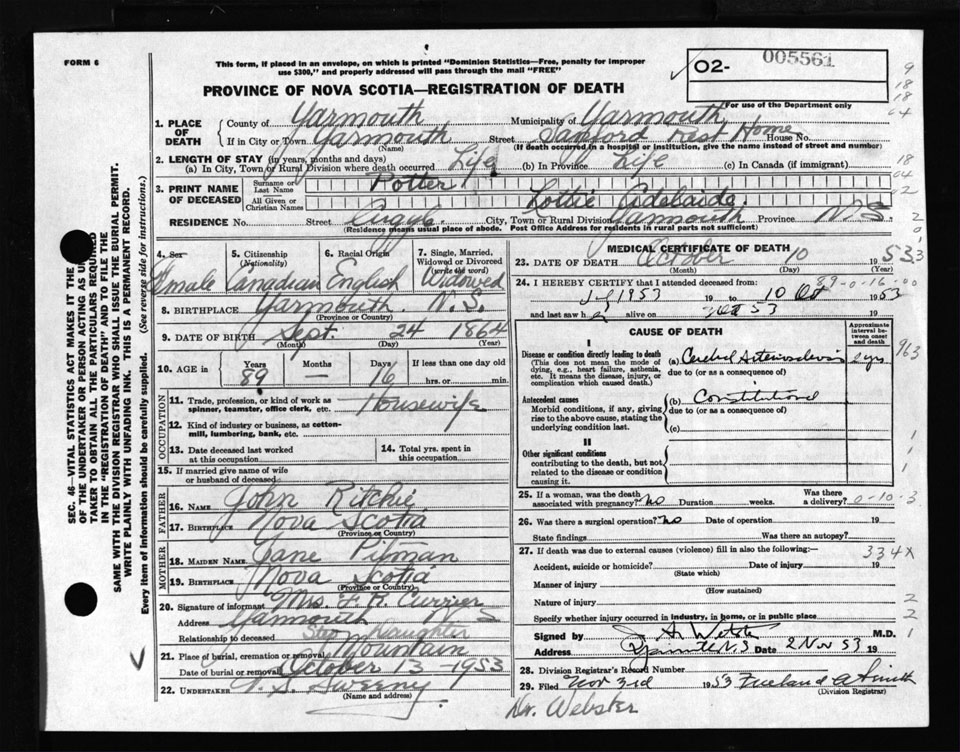 FORM 6
This form, if placed in an envelope, on which is printed "Dominion Statistics—Free, penalty for improper
use $300," and properly addressed will pass through the mail "FREE"
PROVINCE OF NOVA SCOTIA—REGISTRATION OF DEATH
02- 005561
For use of the Department only
1. PLACE OF DEATH
County of Yarmouth Municipality of Yarmouth
If in City or Town Yarmouth Street Sanford Rest Home House No.
(Name) (If death occurred in a hospital or institution, give the name instead of street and number)
2. LENGTH OF STAY (in years, months and days)
(a) In City, Town or Rural Division where death occurred Life (b) In Province Life (c) In Canada (if immigrant)
3. PRINT NAME OF DECEASED
Surname or Last Name Potter
All Given or Christian Names Lottie Adelaide
RESIDENCE No. Street Argyle City, Town or Rural Division Yarmouth Province N.S.
(Residence means usual place of abode. Post Office Address for residents in rural parts not sufficient)
4. Sex Female
5. Citizenship (Nationality) Canadian
6. Racial Origin English
7. Single, Married, Widowed or Divorced (write the word) Widowed
8. BIRTHPLACE Yarmouth N.S.
(Province or Country)
9. DATE OF BIRTH Sept. 24 1864
(Month) (Day) (Year)
10. AGE in Years 89 Months Days 16 If less than one day old hrs. or min.
OCCUPATION
11. Trade, profession, or kind of work as spinner, teamster, office clerk, etc. Housewife
12. Kind of industry or business, as cotton-mill, lumbering, bank, etc.
13. Date deceased last worked at this occupation
14. Total yrs. spent in this occupation
15. If married give name of wife or husband of deceased
FATHER
16. NAME John Ritchie
17. BIRTHPLACE Nova Scotia
(Province or Country)
MOTHER
18. MAIDEN NAME Jane Pitman
19. BIRTHPLACE Nova Scotia
(Province or Country)
20. Signature of informant Mrs. F. R. Currier
Address Yarmouth N S
Relationship to deceased Step Daughter
21. Place of burial, cremation or removal Mountain
Date of burial or removal October 13 - 1953
22. UNDERTAKER V. S. Sweeny
(Name and address)
MEDICAL CERTIFICATE OF DEATH
23. DATE OF DEATH October 10 1953
(Month) (Day) (Year)
24. I HEREBY CERTIFY that I attended deceased from: 89-0-16-00
1953 19 to 10 Oct 1953
and last saw h alive on Oct 53 19
CAUSE OF DEATH
Approximate interval between onset and death
I
Disease or condition directly leading to death
(This does not mean the mode of dying, e.g., heart failure, asthenia, etc. It means the disease, injury, or complication which caused death.)
(a) Cerebral Arteriosclerosis yrs
due to (or as a consequence of)
Antecedent causes
Morbid conditions, if any, giving rise to the above cause, stating the underlying condition last.
(b) Constitutional
due to (or as a consequence of)
(c)
II
Other significant conditions
contributing to the death, but not related to the disease or condition causing it.
25. If a woman, was the death associated with pregnancy? no Duration weeks. Was there a delivery? 0-10-3
26. Was there a surgical operation? no Date of operation 19
State findings Was there an autopsy?
27. If death was due to external causes (violence) fill in also the following:— 334X
Accident, suicide or homicide? Date of injury 19
(State which)
Manner of injury
(How sustained)
Nature of injury
Specify whether injury occurred in industry, in home, or in public place
Signed by M.D.
Address Yarmouth N.S Date 2 Nov 53 19
28. Division Registrar's Record Number
29. Filed Nov 3rd 1953
(Division Registrar)
Dr. Webster
SEC. 46—VITAL STATISTICS ACT MAKES IT THE
OF THE UNDERTAKER OR PERSON ACTING AS
TAKER TO OBTAIN ALL THE PARTICULARS REQUIRED
IN THE "REGISTRATION OF DEATH" AND TO FILE THE
SAME WITH THE DIVISION REGISTRAR WHO SHALL ISSUE THE BURIAL PERMIT.
WRITE PLAINLY WITH UNFADING INK. THIS IS A PERMANENT RECORD.
Every item of information should be carefully supplied. (See reverse side for instructions.)
9
18
18
64
18
04
02
2
0
3
963
1
1
1
2
2
1